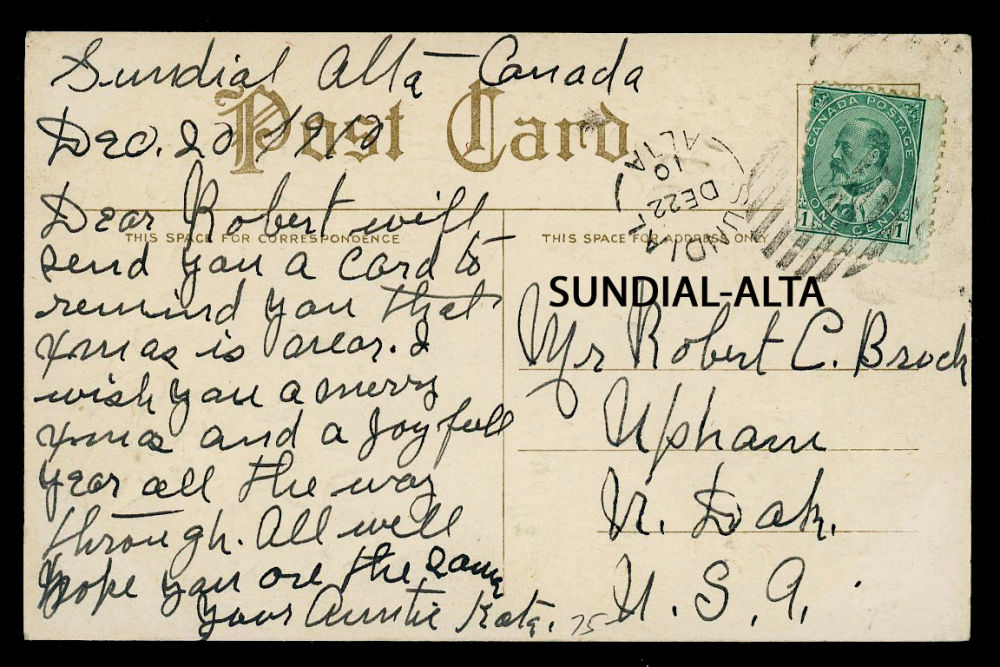 Sundial Alta - Canada
Post Card
Dec. 20 1910
Dear Robert will
THIS SPACE FOR CORRESPONDENCE
send you a card to
remind you that
Xmas is near. I
wish you a merry
Xmas and a Joy full
year all the way
through. All well
hope you are the same
your Auntie Kate.
75
CANADA POSTAGE
ONE CENT
1 1
SUNDIAL
DE 22
10
ALTA
THIS SPACE FOR ADDRESS ONLY
SUNDIAL-ALTA
Mr Robert C. Brock
Upham
N. Dak.
U. S. A.